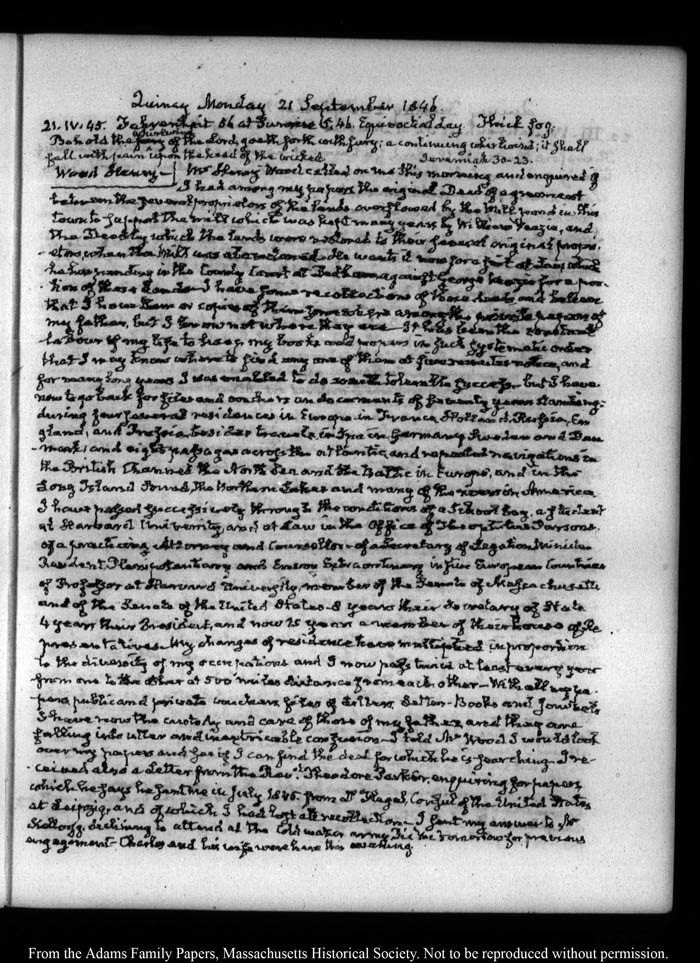 Quincy Monday 21 September 1846.
21. IV. 45. Fahrenheit 56 at Sunrise 5.46. Equinoctial day Thick fog.
whirlwind
Behold the fury of the Lord, goeth forth with fury; a continuing whirlwind; it shall
fall with pain upon the head of the wicked. Jeremiah 30-23.
Wood Henry— Mr Henry Wood called on me this morning and enquired if
I had among my papers the original Deed of agreement
between the several proprietors of the lands overflowed by the Mill pond in this
town to support the mill which was kept many years by William Veazie, and
the Deed by which the lands were restored to their several original propri-
etors when the Mill was abandoned He wants it now for a suit at Law which
he has pending in the County Court at Dedham against George Veazie for a por-
tion of those lands—I have some recollections of those deeds and believe
that I have them or copies of them somewhere among the private papers of
my father, but I know not where they are—It has been the constant
labour of my life to keep my books and papers in such systematic order
that I may know where to find any one of them at five minutes notice, and
for many long years I was enabled to do so with tolerable success, but I have
now to go back for files and vouchers and documents of seventy years standing:
during four several residences in Europe in France, Holland, Russia, En
gland, and Prussia, besides travels in Germany Sweden and Den
mark; and eight passages across the atlantic, and repeated navigations in
the British Channel the North Sea and the Baltic in Europe, and in the
Long Island Sound, the Northern Lakes and many of the rivers in America
I have passed successively through the conditions of a School boy, a Student
at Harvard University, and at Law in the Office of Theophilus Parsons.
of a practicing Attorney and Counsellor—of a Secretary of Legation Minister
Resident, Plenipotentiary and Envoy Extraordinary in five European Countries
of Professor at Harvard University, member of the Senate of Massachusetts
and of the Senate of the United States—8 years their Secretary of State
4 years their President, and now 15 years a member of their house of Re
presentatives. My changes of residence have multiplied in proportion
to the diversity of my occupations and I now pass twice at least every year
from one to the other at 500 miles distance from each other—With all my pa-
pers, public and private vouchers, files of Letters, Letter-Books and Journals
I have now the custody and care of those of my father, and they are
falling into utter and inextricable confusion—I told Mr Wood I would look
over my papers and see if I can find the deed for which he is searching. I re-
ceived also a Letter from the Revd Theodore Parker, enquiring for papers
which he says he sent me in July 1845. from Dr Flugel, Consul of the United States
at Leipzig, and of which I had lost all recollection—I sent my answer to Mr
Kellogg, declining to attend at the Cold water army Pic Nic tomorrow for previous
engagement—Charles and his wife were here this evening.
From the Adams Family Papers, Massachusetts Historical Society. Not to be reproduced without permission.